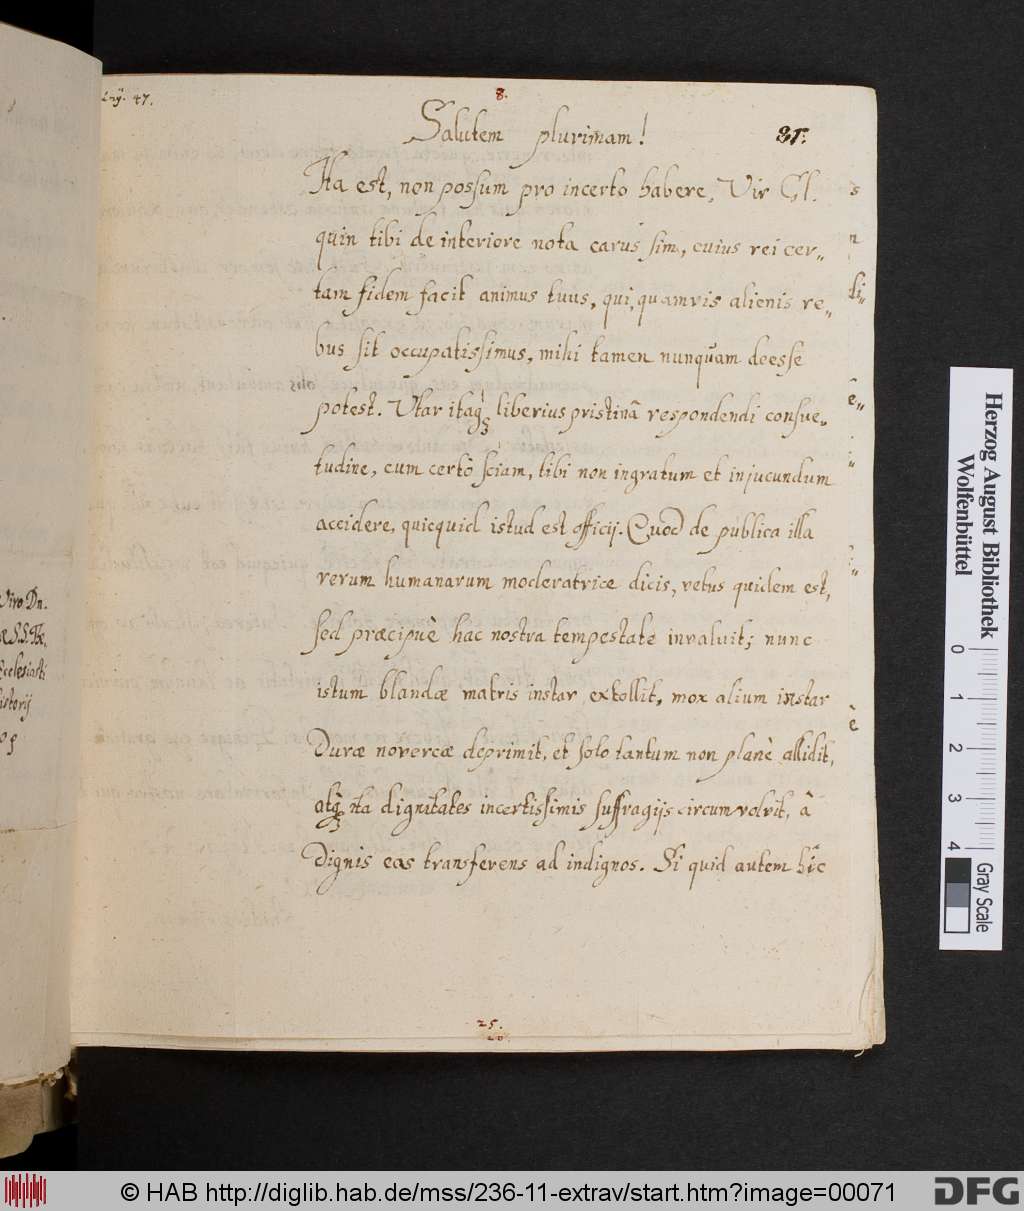 8.
47.
Salutem plurimam!
31.
Ita est, non possum pro incerto habere, Vir Cl.
quin tibi de interiore nota carus sim, cuius rei cer-
tam fidem facit animus tuus, qui, quamvis alienis re-
bus sit occupatissimus, mihi tamen nunquam deesse
potest. Utar itaq; liberius pristinâ respondendi consue-
tudine, cum certò sciam, tibi non ingratum et injucundum
accidere, quicquid istud est officij. Quod de publica illa
rerum humanarum moderatrice dicis, vetus quidem est,
sed præcipuè hac nostra tempestate invaluit; nunc
istum blandæ matris instar extollit, mox alium instar
Duræ novercæ deprimit, et solo tantum non planè allidit,
atq; ita dignitates incertissimis suffragijs circumvolvit, â
Dignis eas transferens ad indignos. Si quid autem hîc
25.
20.
Viro Dn.
Ecclesiasti
istorij
Herzog August Bibliothek
Wolfenbüttel
0 1 2 3 4
Gray Scale
© HAB http://diglib.hab.de/mss/236-11-extrav/start.htm?image=00071
DFG